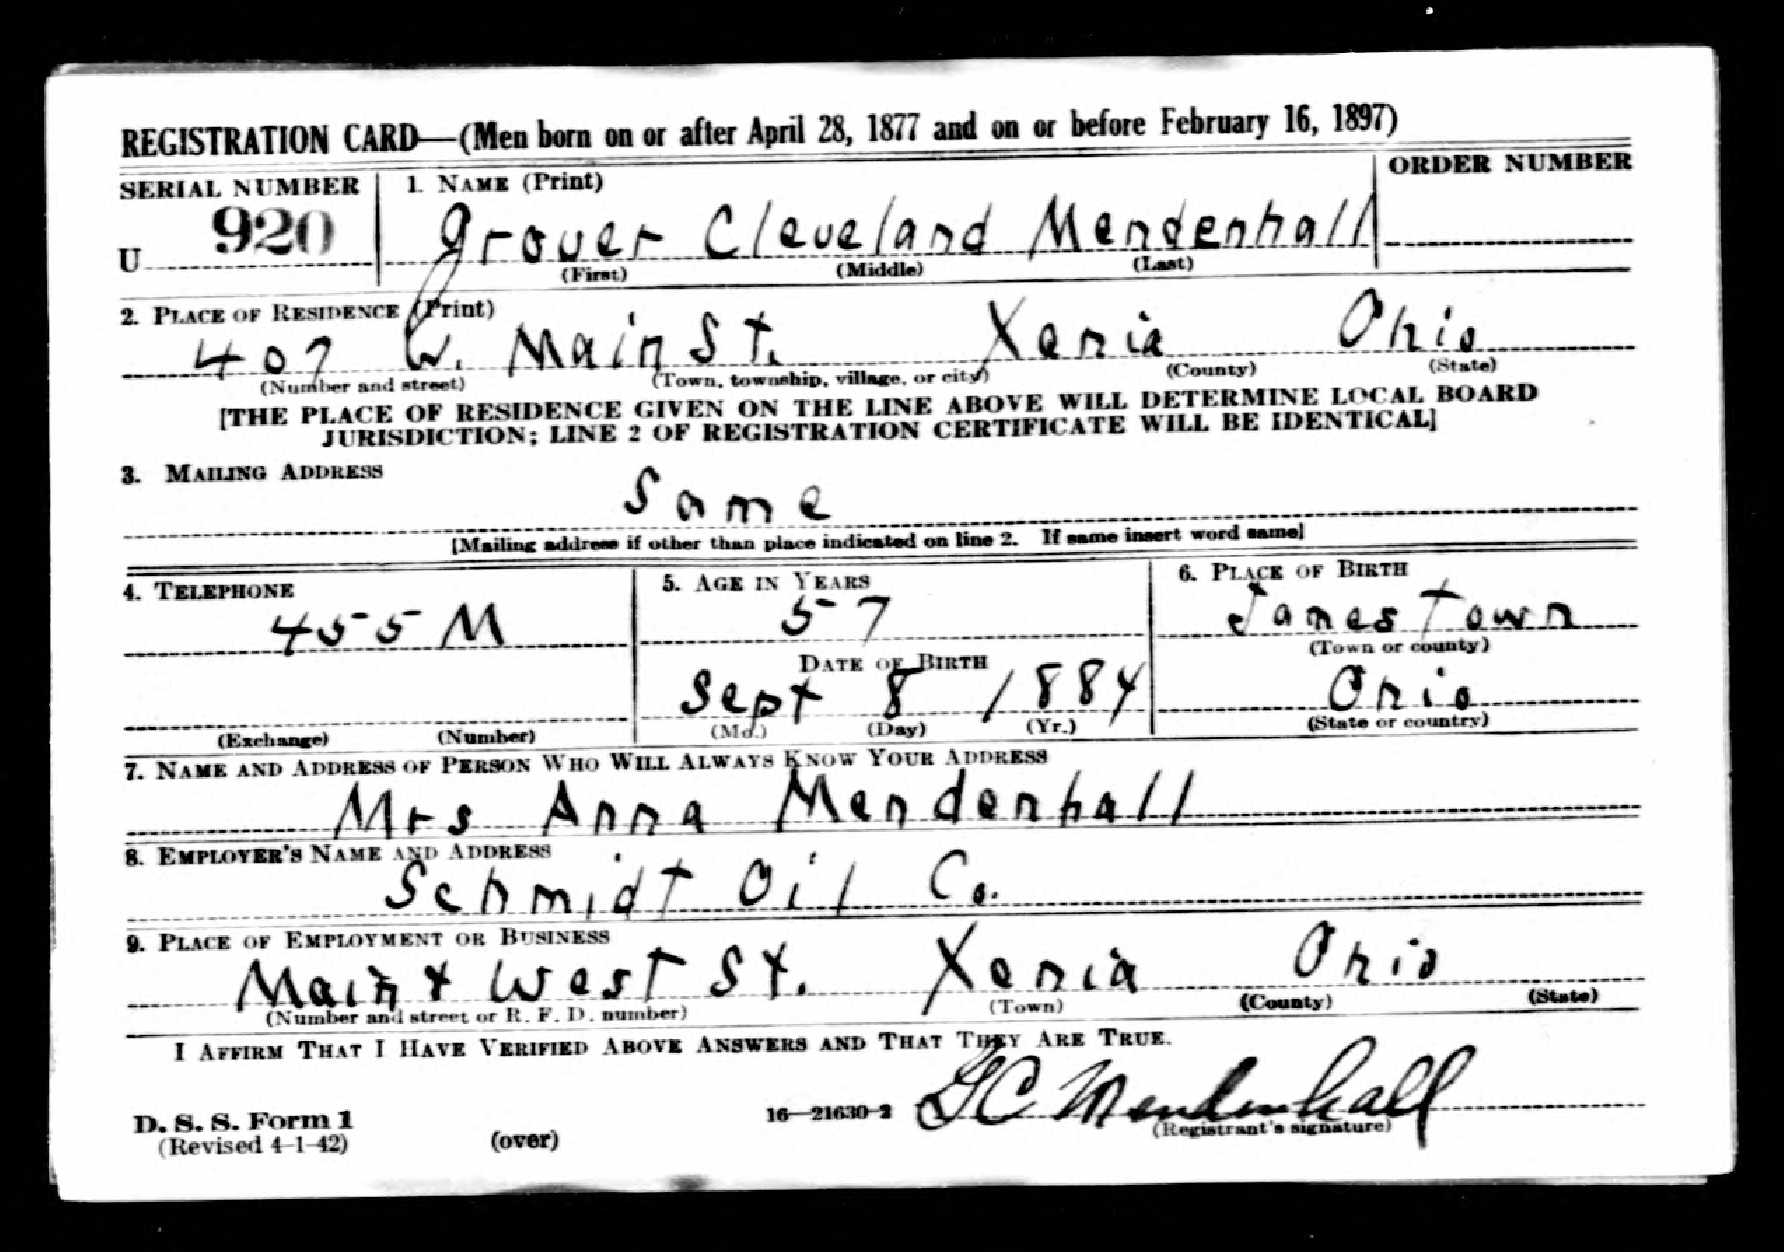 REGISTRATION CARD—(Men born on or after April 28, 1877 and on or before February 16, 1897)
SERIAL NUMBER
1. NAME (Print)
ORDER NUMBER
U 920
Grover Cleveland Mendenhall
(First) (Middle) (Last)
2. PLACE OF RESIDENCE (Print)
407 W. Main St. Xenia Ohio
(Number and street) (Town, township, village, or city) (County) (State)
[THE PLACE OF RESIDENCE GIVEN ON THE LINE ABOVE WILL DETERMINE LOCAL BOARD
JURISDICTION; LINE 2 OF REGISTRATION CERTIFICATE WILL BE IDENTICAL]
3. MAILING ADDRESS
Same
[Mailing address if other than place indicated on line 2. If same insert word same]
4. TELEPHONE
455 M
(Exchange) (Number)
5. AGE IN YEARS
57
DATE OF BIRTH
Sept 8 1884
(Mo.) (Day) (Yr.)
6. PLACE OF BIRTH
Jamestown
(Town or county)
Ohio
(State or country)
7. NAME AND ADDRESS OF PERSON WHO WILL ALWAYS KNOW YOUR ADDRESS
Mrs Anna Mendenhall
8. EMPLOYER'S NAME AND ADDRESS
Schmidt Oil Co.
9. PLACE OF EMPLOYMENT OR BUSINESS
Main & West St. Xenia Ohio
(Number and street or R. F. D. number) (Town) (County) (State)
I AFFIRM THAT I HAVE VERIFIED ABOVE ANSWERS AND THAT THEY ARE TRUE.
D. S. S. Form 1
(Revised 4-1-42)
(over)
16—21630-2
GC Mendenhall
(Registrant's signature)